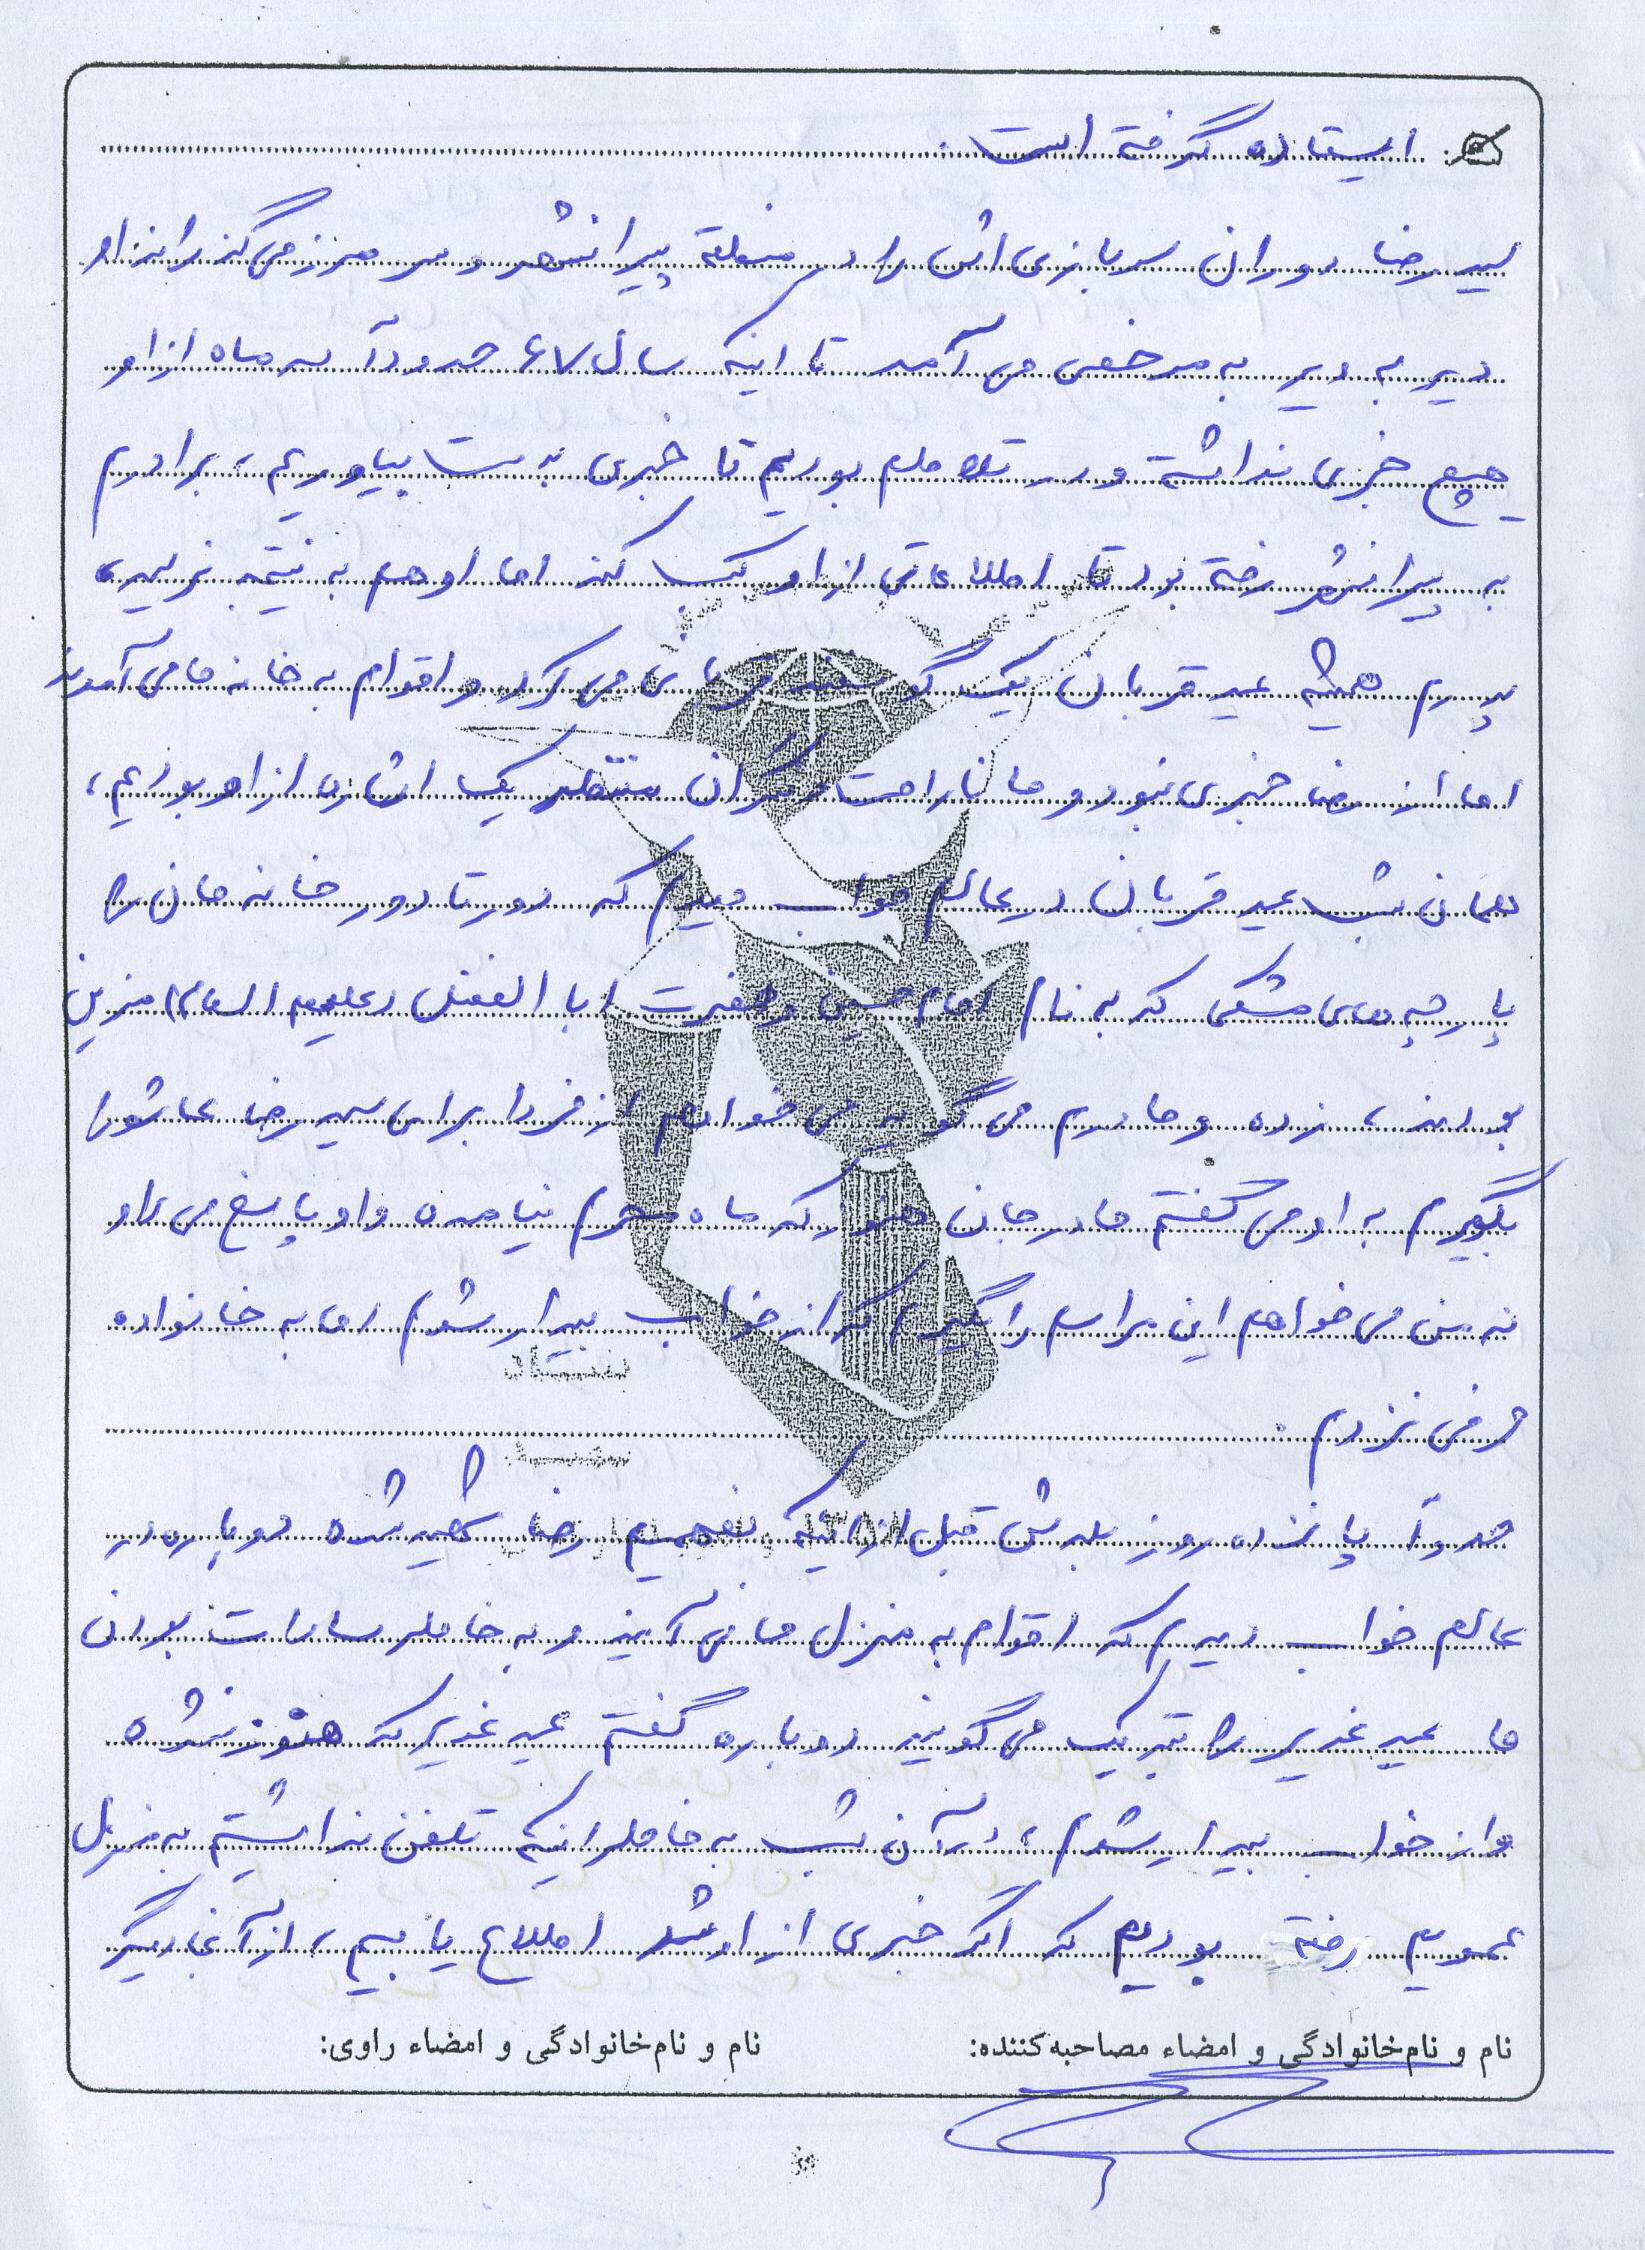 ایستاده گرفته است.
سید رضا دوران سربازی اش را در منطقه پیرانشهر و سر مرز می گذراند او
دیر به دیر به مرخصی می آمد تا اینکه سال ۶۷ حدوداً سه ماه از او
هیچ خبری نداشته و در تلاطم بودیم تا خبری بدست بیاوریم، برادرم
به پیرانشهر رفته بود تا اطلاعاتی از او کسب کند اما او هم به نتیجه نرسید،
پدرم همیشه عید قربان یک گوسفند قربانی می کرد و اقوام به خانه ما می آمدند
اما از رضا خبری نبود و ما ناراحت و نگران منتظر یک اشاره از او بودیم،
همان شب عید قربان در عالم خواب دیدم که دور تا دور خانه مان را
پارچه های مشکی که به نام امام حسین و حضرت ابا الفضل (علیهم السلام) مزین
بودند، زده و مادرم می گوید می خواهم از فردا برای سید رضا عاشورا
بگیرم به او می گفتم مادر جان هنوز که ماه محرم نیامده و او پاسخ می داد
نه من می خواهم این مراسم را بگیرم که از خواب بیدار شدم اما به خانواده
حرفی نزدم.
بنیاد
حدوداً پانزده روز بعدش قبل از اینکه بفهمیم رضا شهید شده دوباره در
عالم خواب دیدم که اقوام به منزل ما می آیند و به خاطر سادات بودن
ما عید غدیر را تبریک می گویند دوباره گفتم عید غدیر که هنوز نشده
و از خواب بیدار شدم، در آن شب به خاطر اینکه تلفن نداشتیم به منزل
عمویم رفته بودیم که اگر خبری از او شد اطلاع یابیم، از آنجا دیگر
نام و نام‌خانوادگی و امضاء مصاحبه‌کننده: نام و نام‌خانوادگی و امضاء راوی: